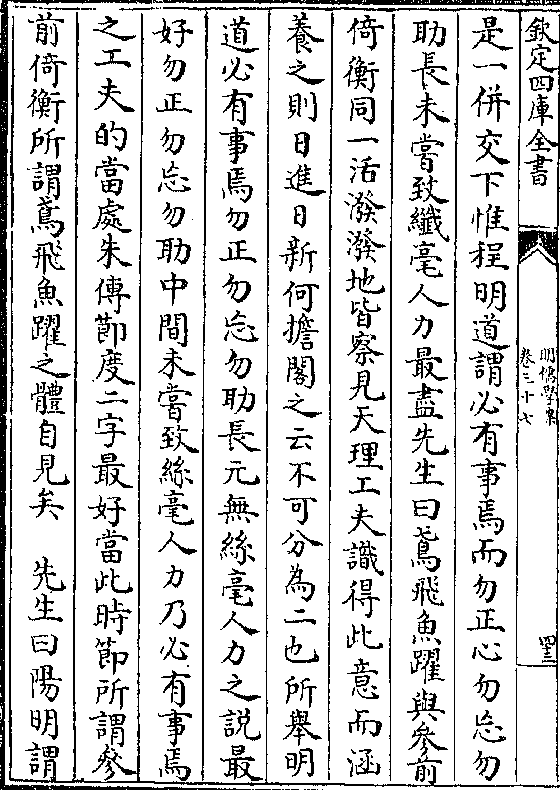 欽定四庫全書
明儒學案
卷三十七
四三
是一併交下惟程明道謂必有事焉而勿正心勿忘勿
助長未嘗致纖毫人力最盡先生曰鳶飛魚躍與參前
倚衡同一活潑潑地皆察見天理工夫識得此意而涵
養之則日進日新何擔閣之云不可分為二也所舉明
道必有事焉勿正勿忘勿助長元無絲毫人力之說最
好勿正勿忘勿助中間未嘗致絲毫人力乃必有事焉
之工夫的當處朱傳節度二字最好當此時節所謂參
前倚衡所謂鳶飛魚躍之體自見矣　先生曰陽明謂